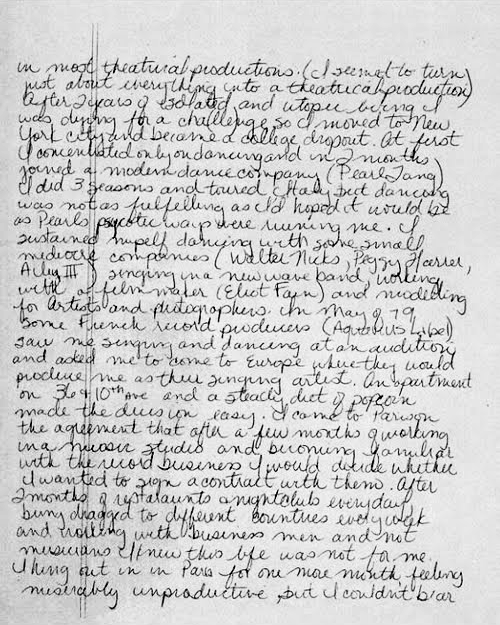 in most theatrical productions. (I seem to turn
just about everything into a theatrical production)
After 2 years of isolated and utopic being I
was dying for a challenge so I moved to New
York City and became a college dropout. At first
I concentrated only on dancing and in 2 months
joined a modern dance company (Pearl Lang)
I did 3 seasons and toured Italy but dancing
was not as fulfelling as I'd hoped it would be
as Pearls psycotic ways were ruining me. I
sustained myself dancing with some small
mediocre companies (Walter Nicks, Peggy Harrer,
Ailey III) singing in a new wave band, working
with a film maker (Eliot Fain) and modelling
for Artists and photographers. In May of 79
some French record producers (Aquarius Libel)
saw me singing and dancing at an audition
and asked me to come to Europe where they would
produce me as their singing artist. An apartment
on 36 & 10th ave and a steady diet of popcorn
made the decision easy. I came to Paris on
the agreement that after a few months of working
in a music studio and becoming familiar
with the record business I would decide whether
I wanted to sign a contract with them. After
2 months of restaraunts & nightclubs everyday,
being dragged to different countries every week
and working with business men and not
musicians I knew this life was not for me.
I hung out in in Paris for one more month feeling
miserably unproductive, but I couldn't bear